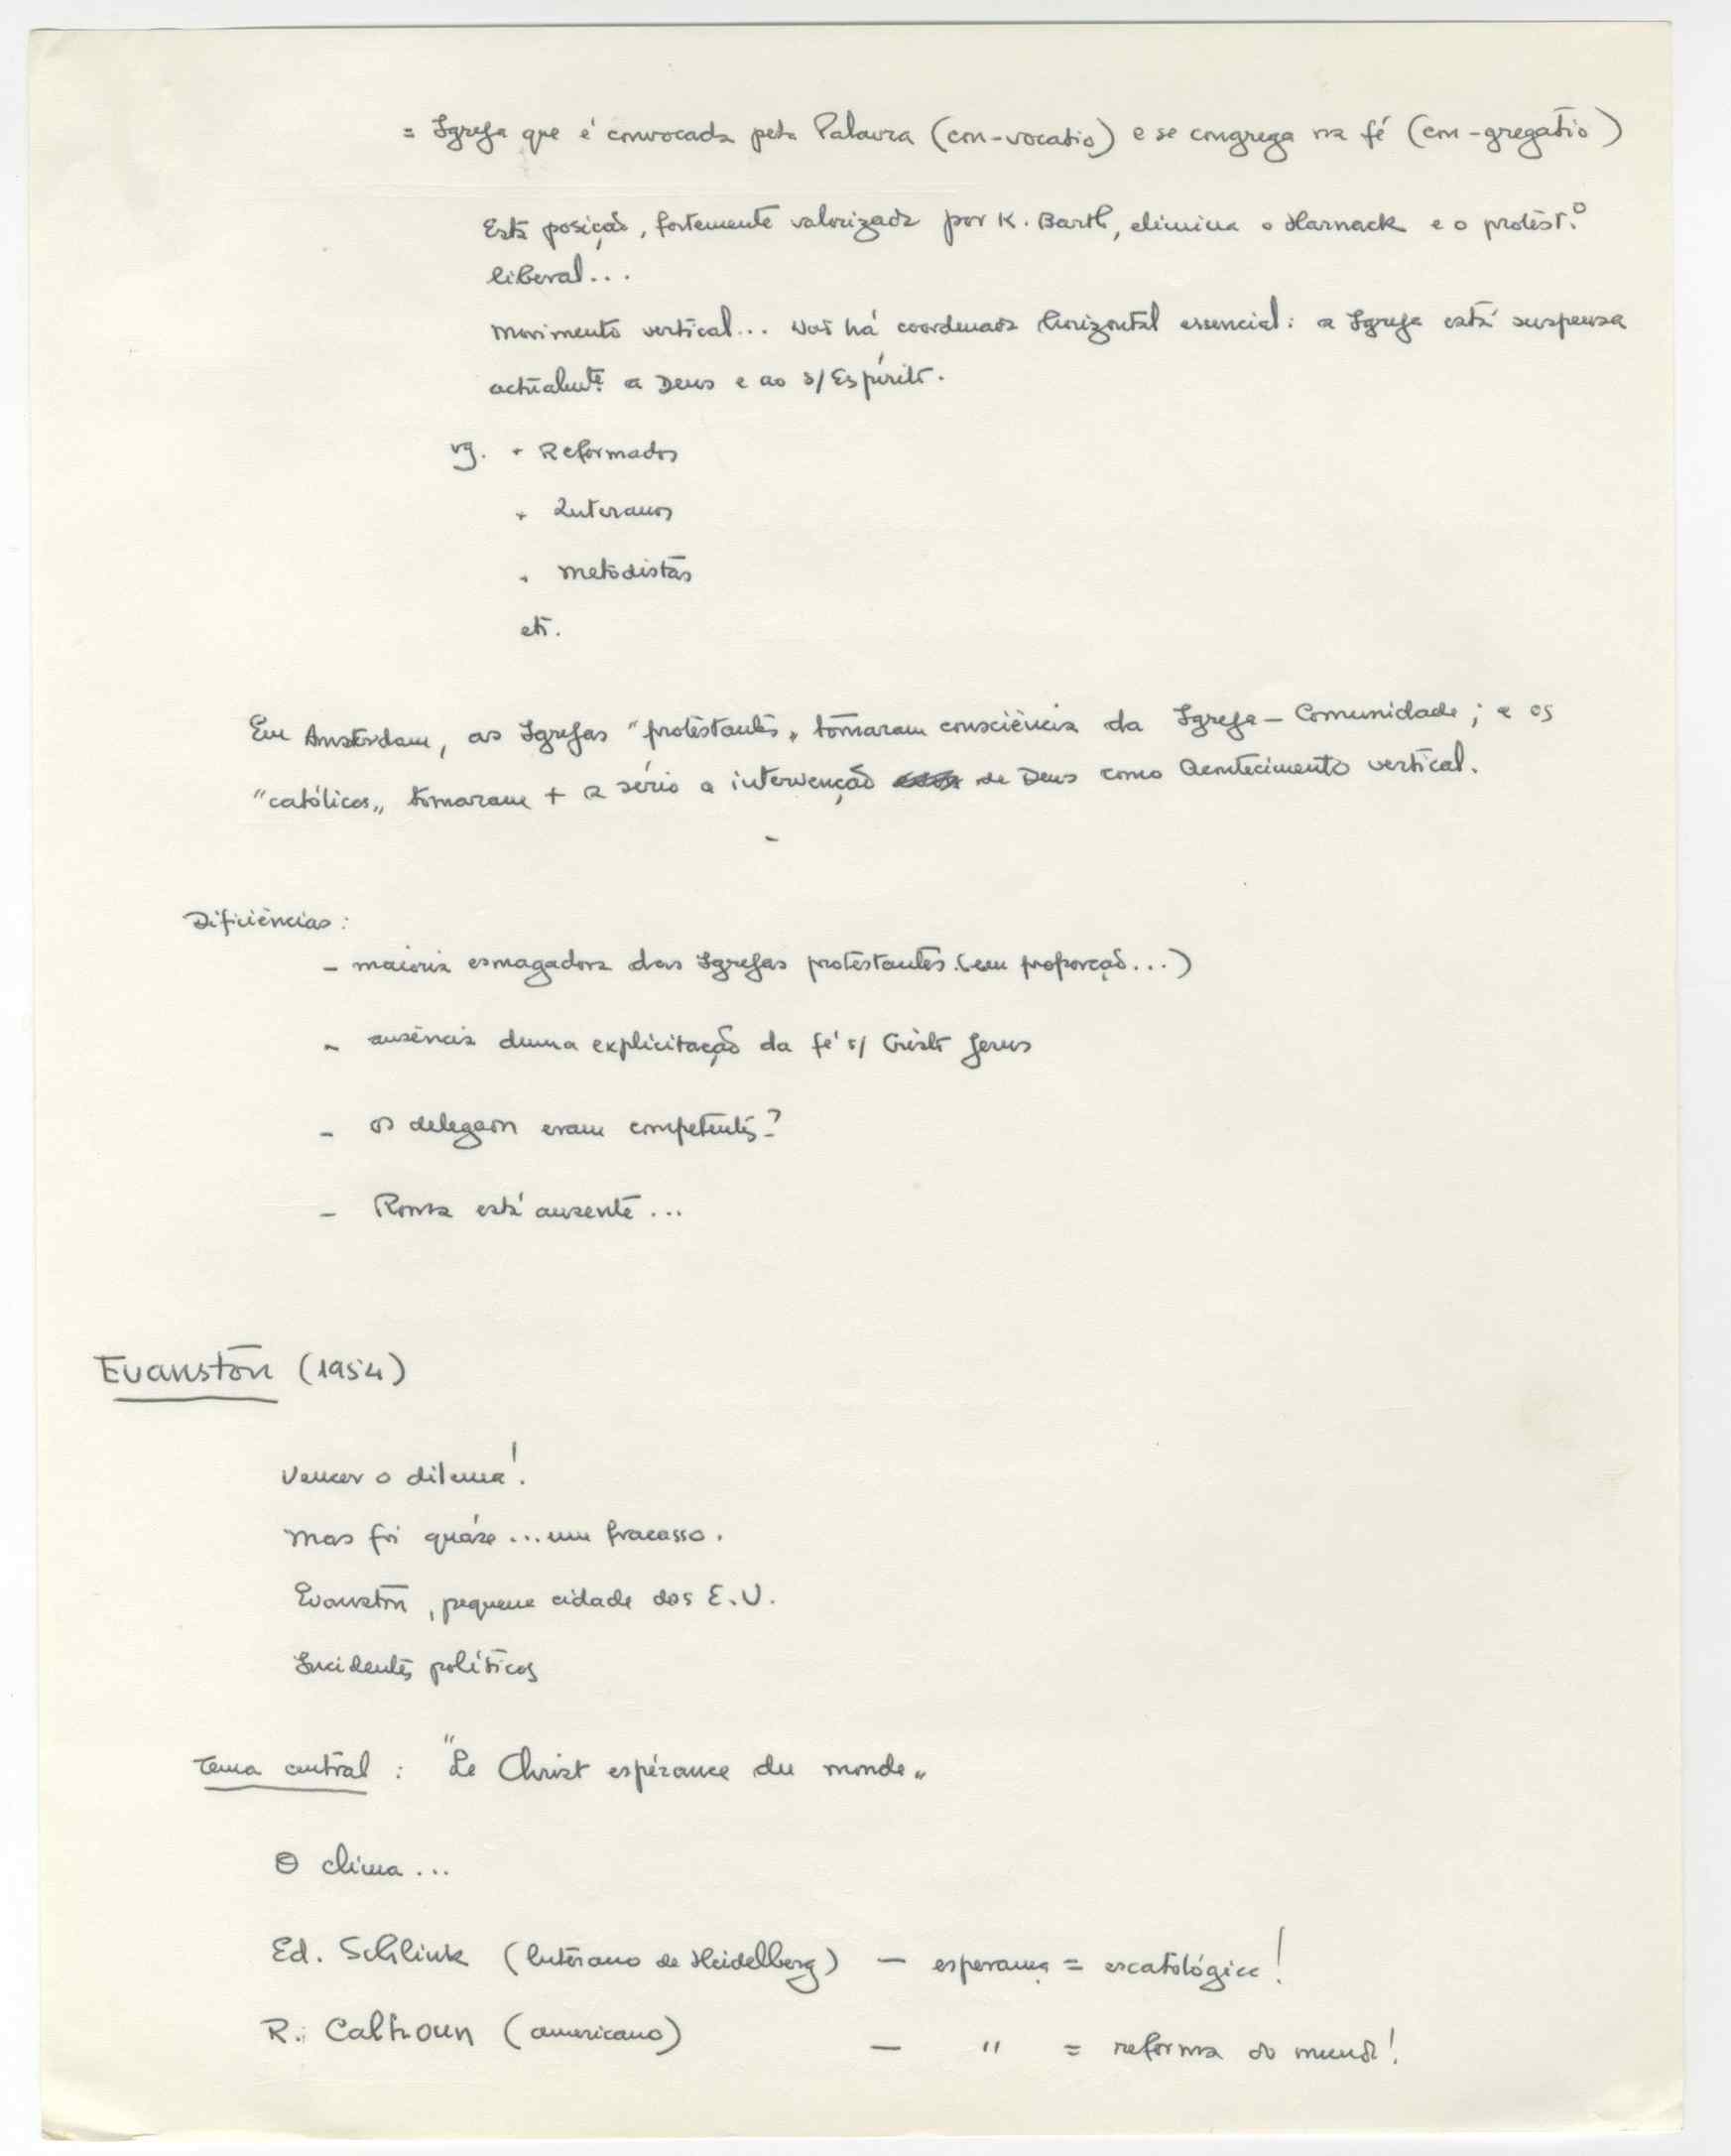 = Igreja que é convocada pela Palavra (con-vocatio) e se congrega na fé (con-gregatio)
Esta posição, fortemente valorizada por K. Barth, elimina o Harnack e o protest.º
liberal...
Movimento vertical... Não há coordenada horizontal essencial: a Igreja está suspensa
actualmte. a Deus e ao s/ Espírito.
vg. + Reformados
+ Luteranos
+ Metodistas
etc.
Em Amsterdam, as Igrejas "protestantes" tomaram consciência da Igreja-Comunidade; e os
"católicos" tomaram + a sério a intervenção de Deus como Acontecimento vertical.
-
Dificiências:
- maioria esmagadora das Igrejas protestantes (em proporção...)
- ausência duma explicitação da fé s/ Cristo Jesus
- os delegados eram competentes?
- Roma está ausente...
Evanston (1954)
Vencer o dilema!
Mas foi quáse... um fracasso.
Evanston, pequena cidade dos E.U.
Incidentes políticos
Tema central : "Le Christ espérance du monde"
O clima...
Ed. Schlink (luterano de Heidelberg) - esperança = escatológica!
R. Calhoun (americano) - " = reforma do mundo!